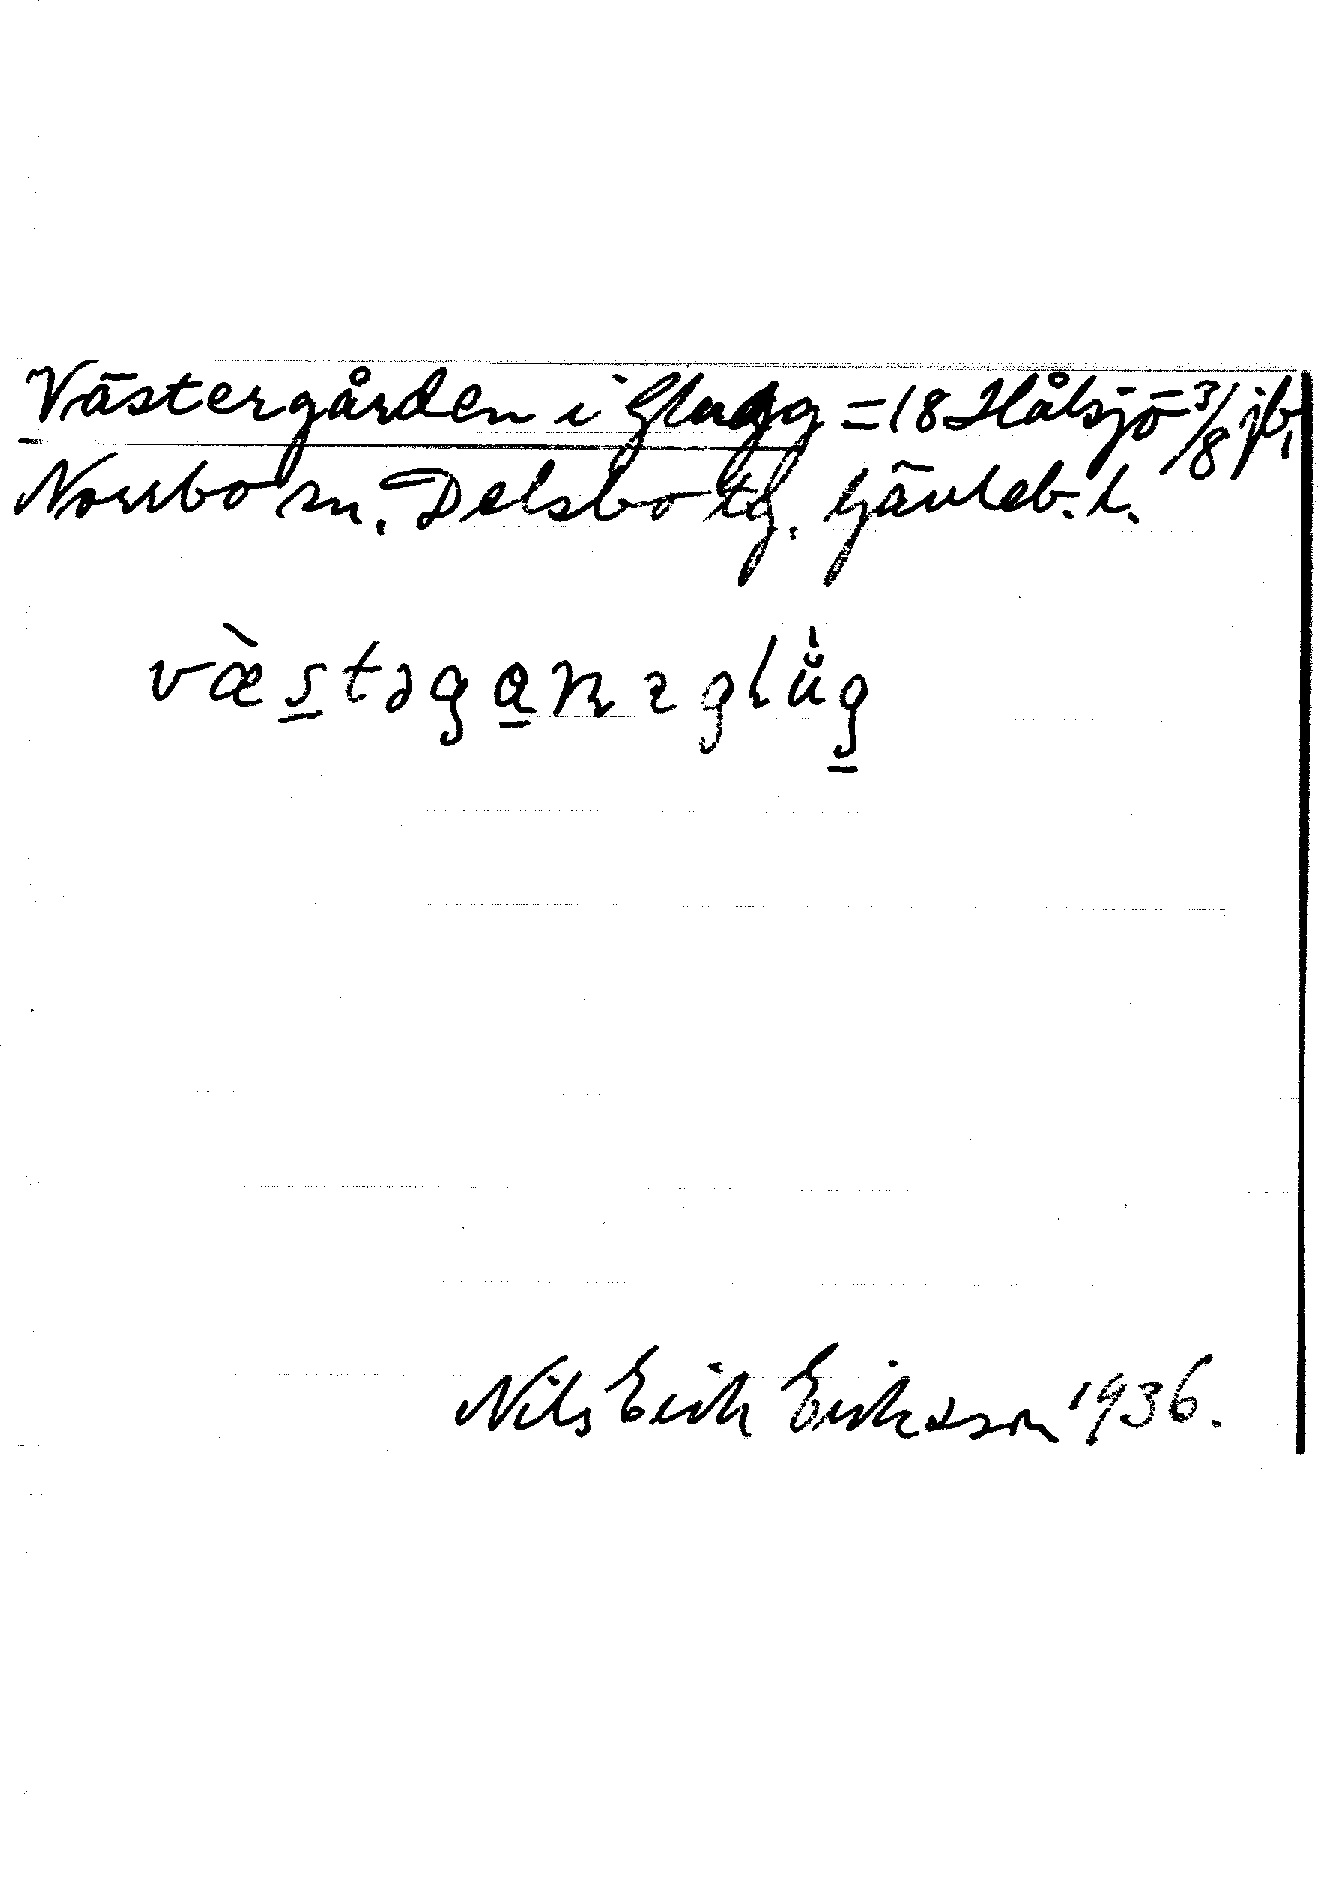 Västergården i Glugg = 18 Hålsjö 3/8 jb,
Norrbo sn. Delsbo tg. Gävleb. l.
væ̀s̲təga̲n ɪ glu̇g̲
Nils Erik Eriksson 1936.